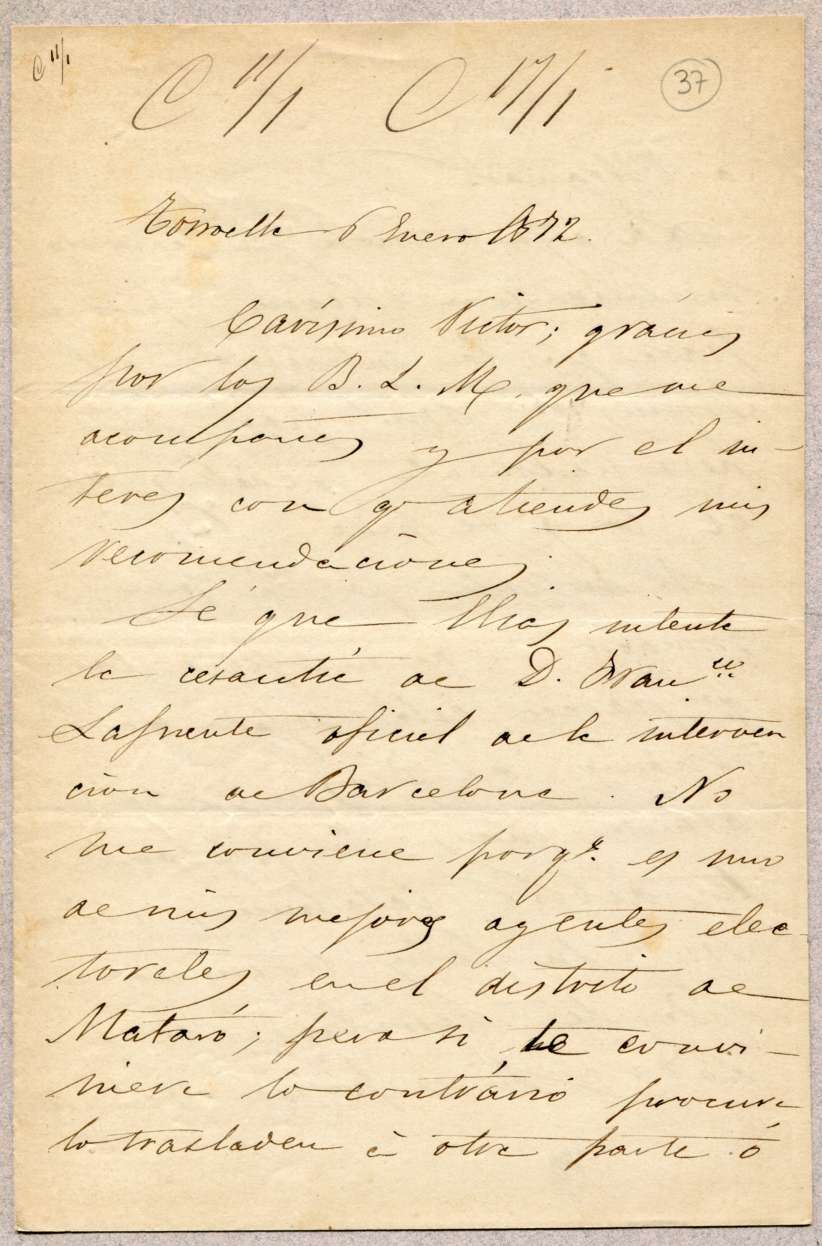 C 11/1
C 11/1 C 17/1 37
Torroella 6 Enero 1872.
Carísimo Victor; grácias
por los B. L. M. que me
acompañas y por el in-
teres con qe atiendes mis
recomendaciones.
Sé que Elias intenta
la cesantia de D. Franco
Lafuente oficial de la interven
cion de Barcelona. No
me conviene porqe. es uno
de mis mejores agentes elec-
torales en el distrito de
Mataró; pero si le convi-
niera lo contrário procura
lo trasladen á otra parte ó